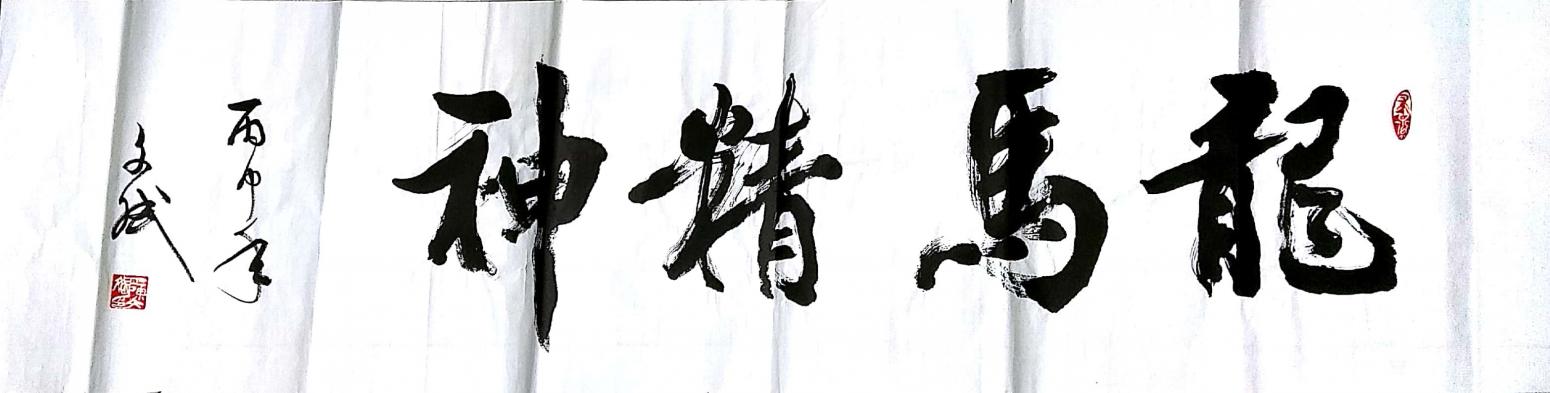 龍馬精神
丙申年
文斌